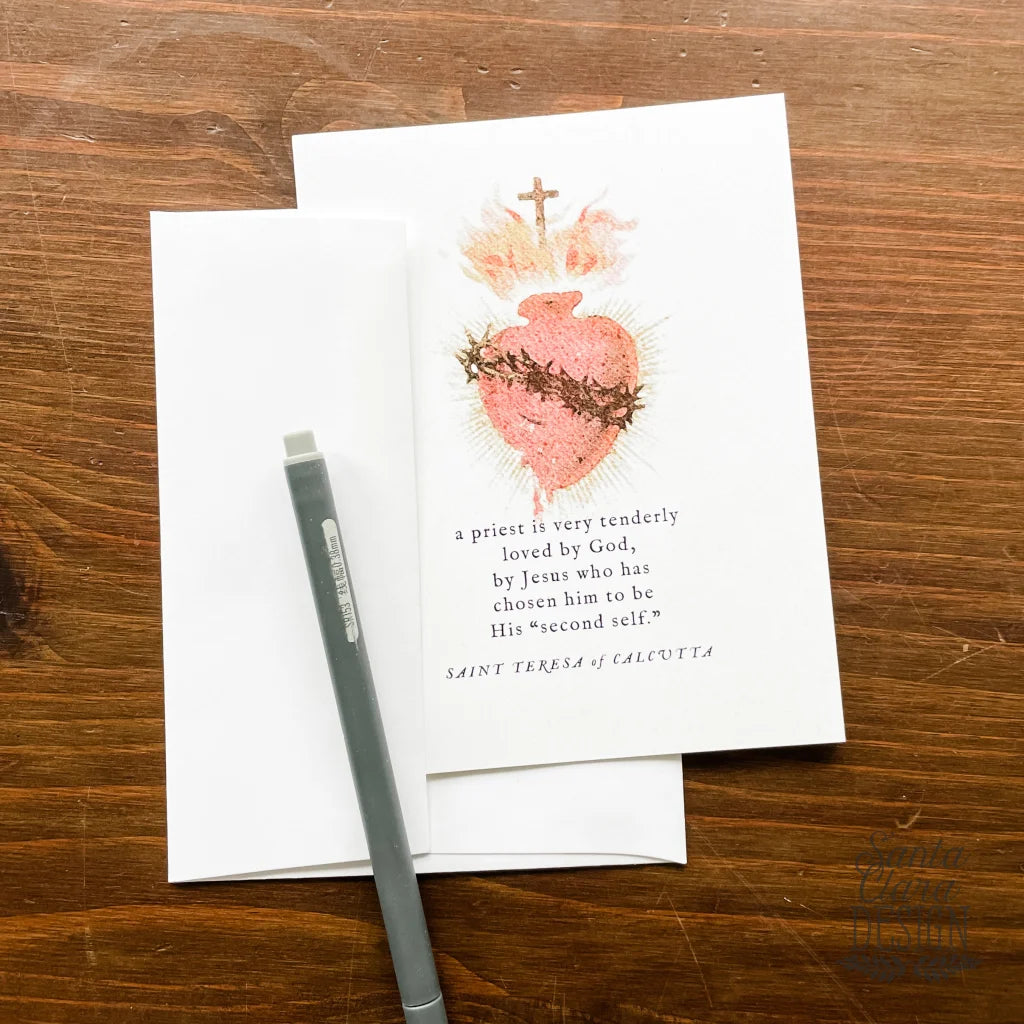 a priest is very tenderly
loved by God,
by Jesus who has
chosen him to be
His “second self.”
SAINT TERESA of CALCUTTA
0.38mm
Santa
Clara
DESIGN